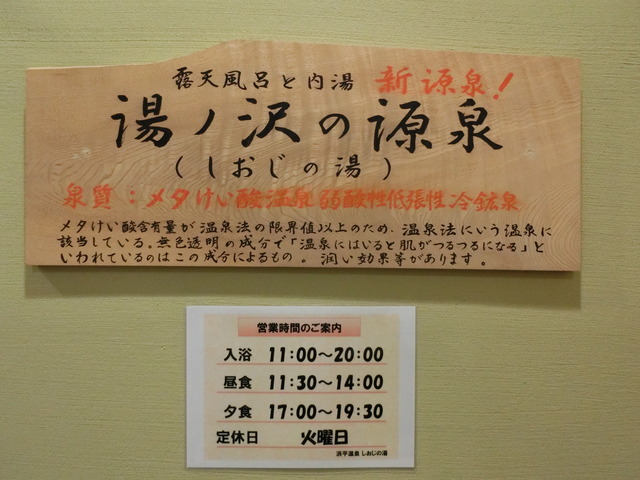 露天風呂と内湯 新源泉!
湯ノ沢の源泉
(しおじの湯)
泉質:メタけい酸温泉 弱酸性低張性冷鉱泉
メタけい酸含有量が温泉法の限界値以上のため、温泉法にいう温泉に
該当している。無色透明の成分で「温泉にはいると肌がつるつるになる」と
いわれているのはこの成分によるもの。潤い効果等があります。
営業時間のご案内
入浴 11:00~20:00
昼食 11:30~14:00
夕食 17:00~19:30
定休日 火曜日
浜平温泉 しおじの湯